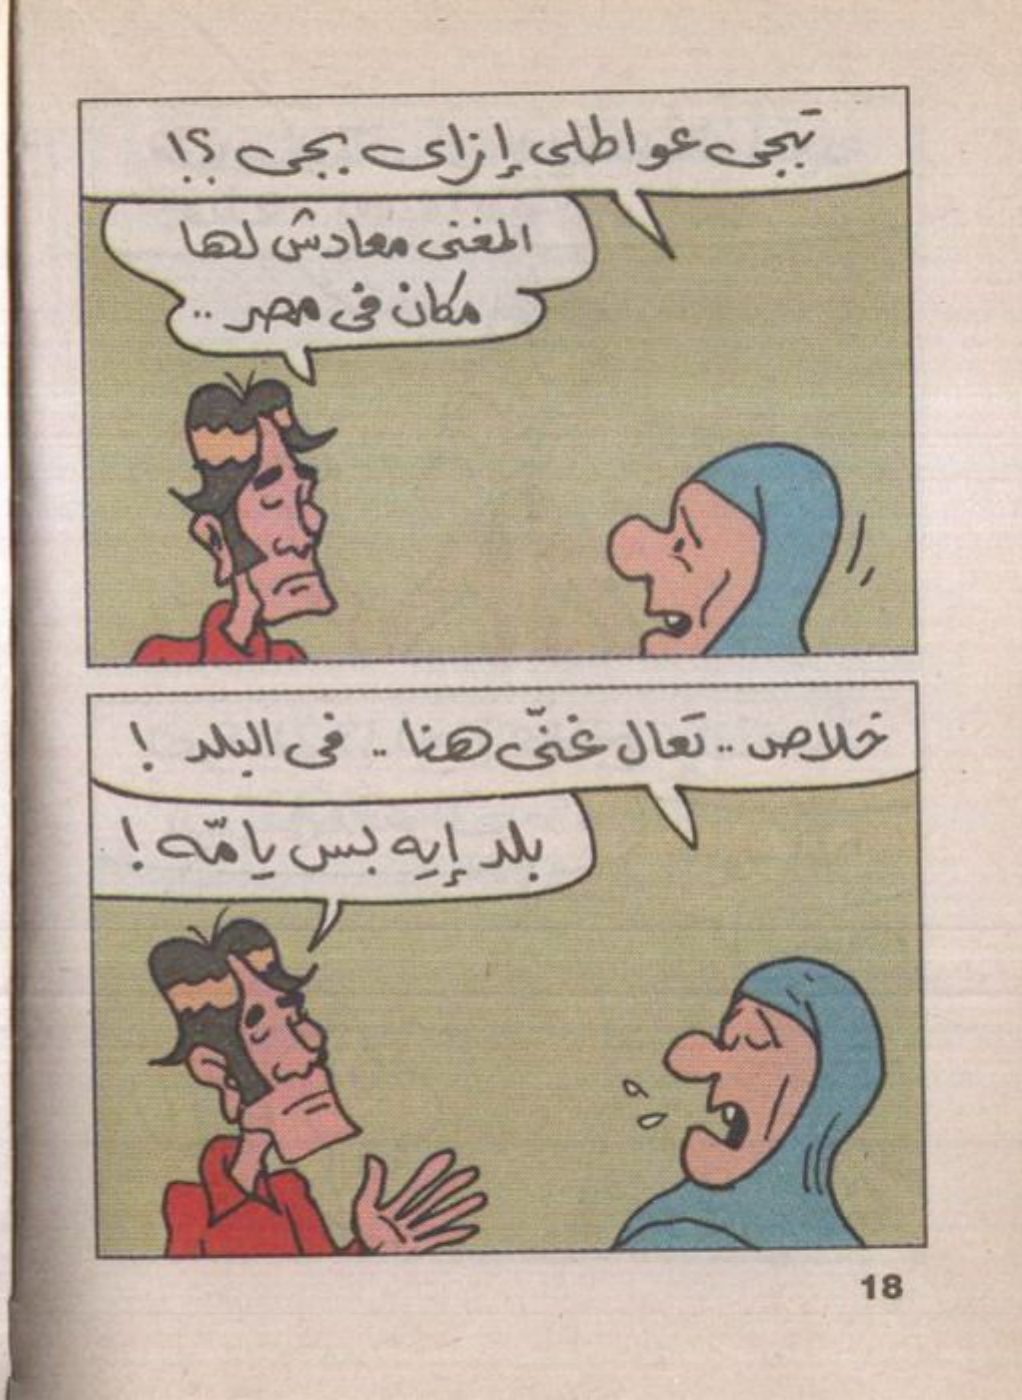 تبجى عواطلى إزاى يجى ؟!
المغنى معادش لها
مكان فى مصر ..
خلاص .. تعال غنّى هنا .. فى البلد !
بلد إيه بس يامّه !
18